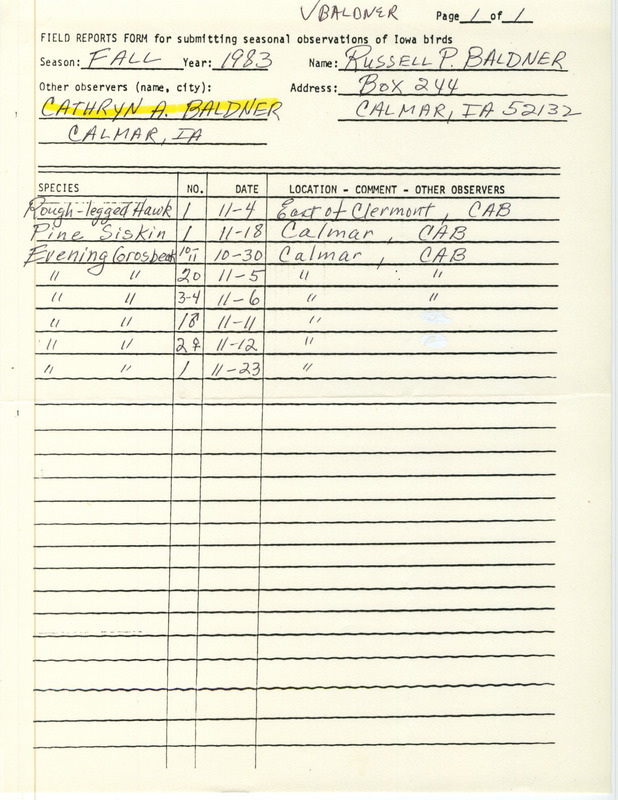 √BALDNER Page 1 of 1
FIELD REPORTS FORM for submitting seasonal observations of Iowa birds
Season: FALL Year: 1983 Name: RUSSELL P. BALDNER
Other observers (name, city): Address: BOX 244
CATHRYN A. BALDNER CALMAR, IA 52132
CALMAR, IA
SPECIES NO. DATE LOCATION - COMMENT - OTHER OBSERVERS
Rough-legged Hawk 1 11-4 East of Clermont, CAB
Pine Siskin 1 11-18 Calmar, CAB
Evening Grosbeak 10-11 10-30 Calmar, CAB
" " 20 11-5 " "
" " 3-4 11-6 " "
" " 11-11 "
" " 2♀ 11-12 "
" " 1 11-23 "